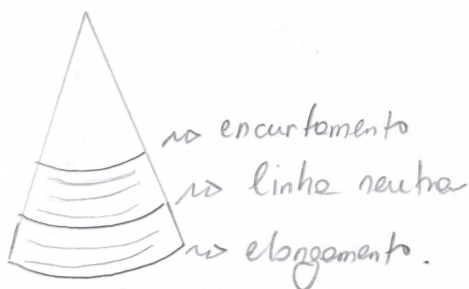 encurtamento
linha neutra
elongamento.